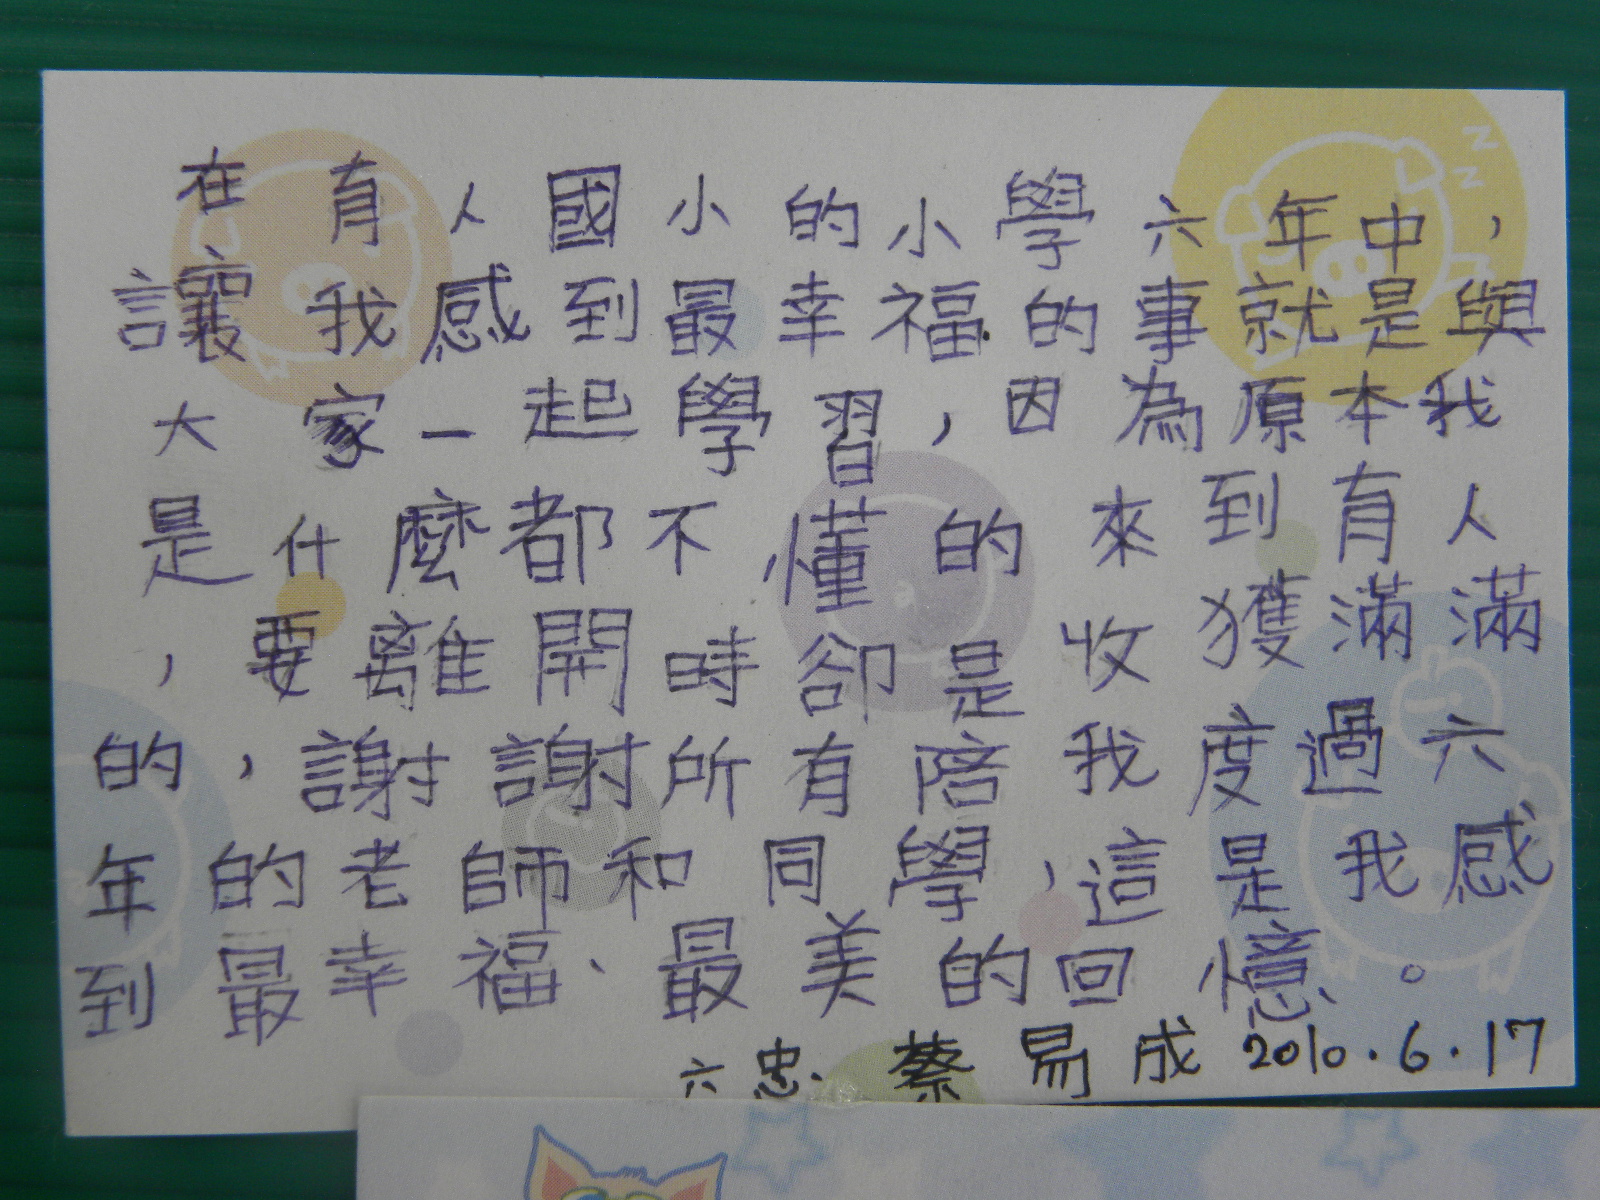 在有人國小的小學六年中，
讓我感到最幸福的事就是與
大家一起學習，因為原本我
是什麼都不懂的來到有人
，要離開時卻是收獲滿滿
的，謝謝所有陪我度過六
年的老師和同學，這是我感
到最幸福、最美的回憶。
六忠 蔡易成 2010.6.17